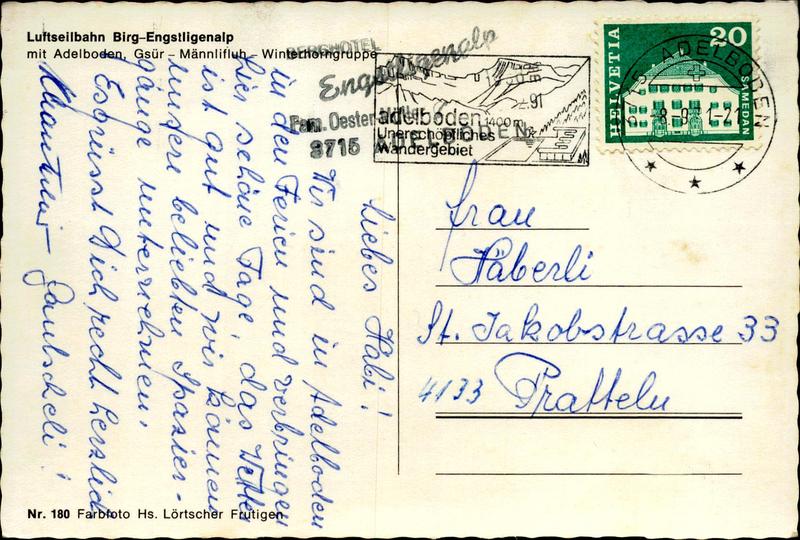 Luftseilbahn Birg-Engstligenalp
mit Adelboden, Gsür – Männlifluh – Winterhorngruppe
BERGHOTEL
Engstligenalp
Fam. Oester
3715 ADELBODEN
adelboden 1400 m
Unerschöpfliches
Wandergebiet
HELVETIA
20
SAMEDAN
ADELBODEN
liebes Habi!
Wir sind in Adelboden
in den Ferien und verbringen
hier schöne Tage, das Wetter
ist gut und wir können
unsere beliebten Spazier-
gänge unternehmen.
Es grüsst Dich recht herzlich
Frau
Häberli
St. Jakobstrasse 33
4133 Pratteln
Nr. 180 Farbfoto Hs. Lörtscher Frutigen